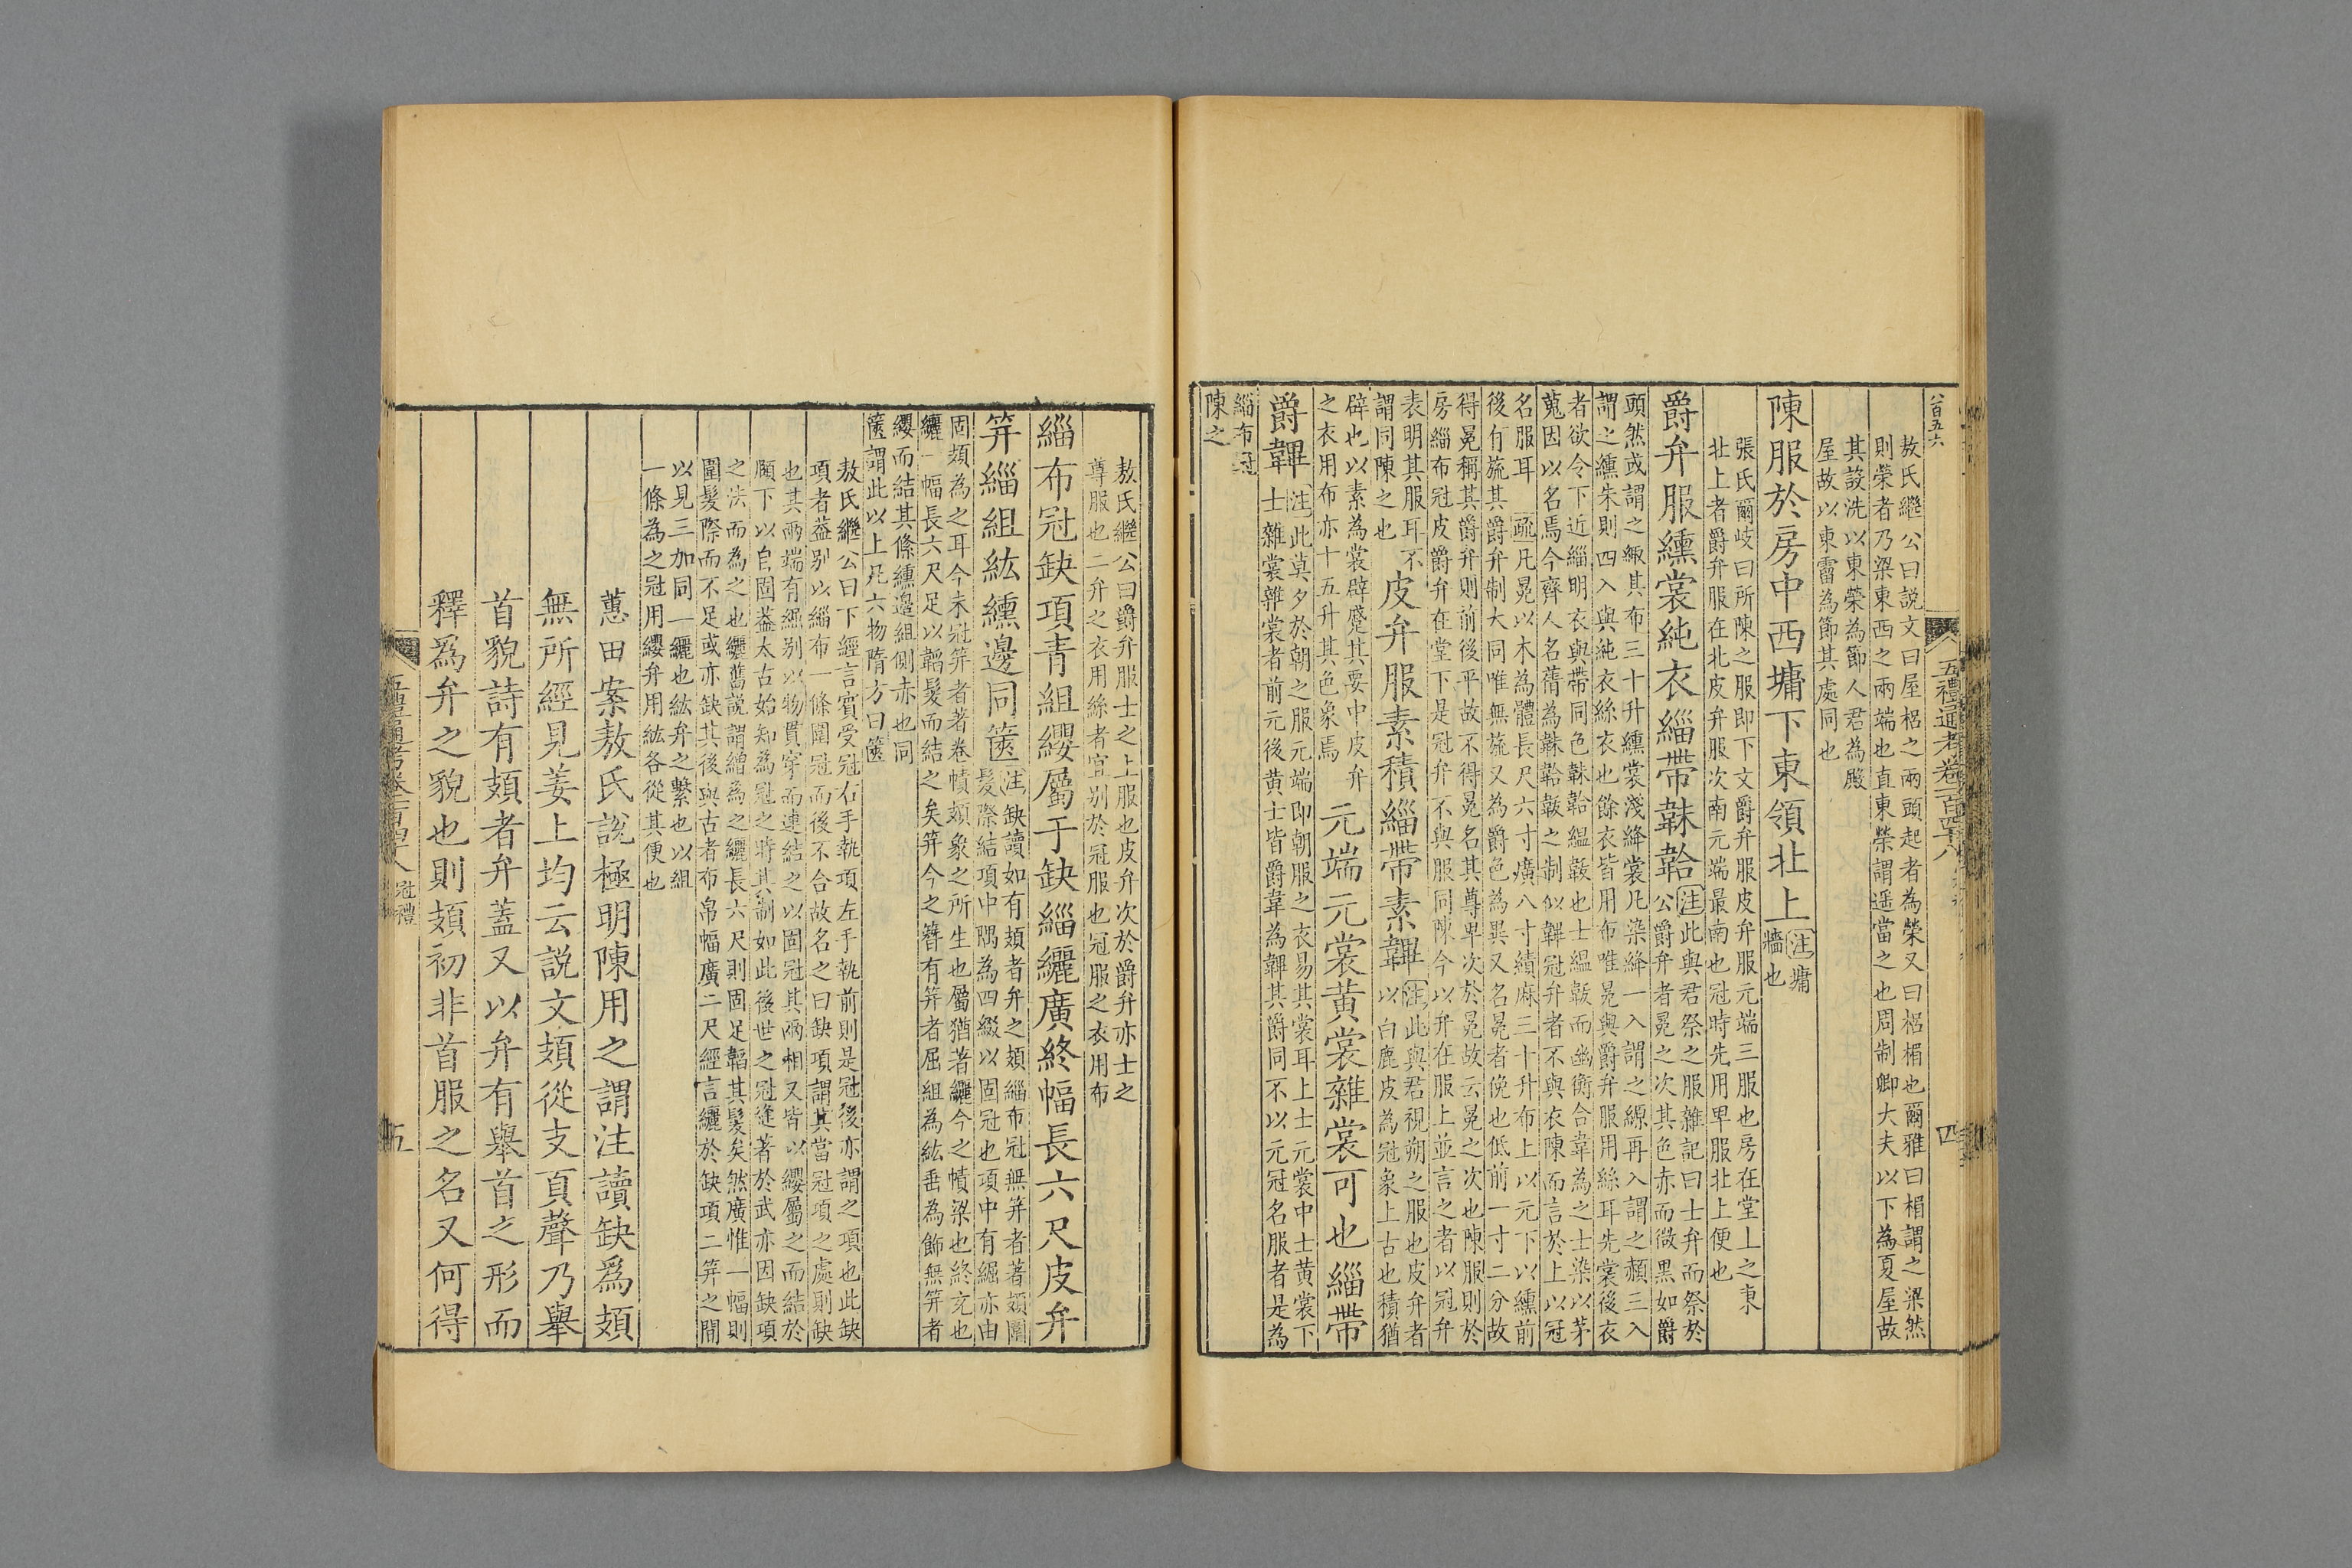 八百五六
五禮通考卷一百四十八
四
敖氏繼公曰説文曰屋梠之兩頭起者為榮又曰梠楣也爾雅曰楣謂之梁然
則榮者乃梁東西之兩端也直東榮謂遥當之也周制卿大夫以下為夏屋故
其設洗以東榮為節人君為殿
屋故以東霤為節其處同也
陳服於房中西墉下東領北上
注墉
牆也
張氏爾岐曰所陳之服即下文爵弁服皮弁服元端三服也房在堂上之東
北上者爵弁服在北皮弁服次南元端最南也冠時先用卑服北上便也
爵弁服纁裳純衣緇帶韎韐
注此與君祭之服雜記曰士弁而祭於
公爵弁者冕之次其色赤而微黒如爵
頭然或謂之緅其布三十升纁裳淺絳裳凡染絳一入謂之縓再入謂之赬三入
謂之纁朱則四入與純衣絲衣也餘衣皆用布唯冕與爵弁服用絲耳先裳後衣
者欲令下近緇明衣與帶同色韎韐緼韍也士緼韍而幽衡合韋為之士染以茅
蒐因以名焉今齊人名蒨為韎韐韍之制似韠冠弁者不與衣陳而言於上以冠
名服耳 疏凡冕以木為體長尺六寸廣八寸績麻三十升布上以元下以纁前
後有旒其爵弁制大同唯無旒又為爵色為異又名冕者俛也低前一寸二分故
得冕稱其爵弁則前後平故不得冕名其尊卑次於冕故云冕之次也陳服則於
房緇布冠皮爵弁在堂下是冠弁不與服同陳今以弁在服上並言之者以冠弁
表明其服耳不
謂同陳之也
皮弁服素積緇帶素韠
注此與君視朔之服也皮弁者
以白鹿皮為冠象上古也積猶
辟也以素為裳辟蹙其要中皮弁
之衣用布亦十五升其色象焉
元端元裳黃裳雜裳可也緇帶
爵韠
注此莫夕於朝之服元端即朝服之衣易其裳耳上士元裳中士黄裳下
士雜裳雜裳者前元後黄士皆爵韋為韠其爵同不以元冠名服者是為
緇布冠
陳之
敖氏繼公曰爵弁服士之上服也皮弁次於爵弁亦士之
尊服也二弁之衣用絲者宜别於冠服也冠服之衣用布
緇布冠缺項青組纓屬于缺緇纚廣終幅長六尺皮弁
笄緇組紘纁邊同篋
注缺讀如有頍者弁之頍緇布冠無笄者著頍圍
髮際結項中隅為四綴以固冠也項中有𦃃亦由
固頍為之耳今未冠笄者著卷幘頍象之所生也屬猶著纚今之幘梁也終充也
纚一幅長六尺足以韜髮而結之矣笄今之簪有笄者屈組為紘垂為飾無笄者
纓而結其絛纁邉組側赤也同
篋謂此以上凡六物隋方曰篋
敖氏繼公曰下經言賓受冠右手執項左手執前則是冠後亦謂之項也此缺
項者蓋别以緇布一條圍冠而後不合故名之曰缺項謂其當冠項之處則缺
也其兩端有𦃃别以物貫穿而連結之以固冠其兩相又皆以纓屬之而結於
頤下以自固蓋太古始知為冠之時其制如此後世之冠逢著於武亦因缺項
之法而為之也纚舊説謂繒為之纚長六尺則固足韜其髮矣然廣惟一幅則
圍髮際而不足或亦缺其後與古者布帛幅廣二尺經言纚於缺項二笄之間
以見三加同一纚也紘弁之繫也以組
一條為之冠用纓弁用紘各從其便也
蕙田案敖氏說極明陳用之謂注讀缺爲頍
無所經見姜上均云説文頍從支頁聲乃舉
首貌詩有頍者弁蓋又以弁有舉首之形而
釋爲弁之貌也則頍初非首服之名又何得
五禮通考卷一百四十八 冠禮
五